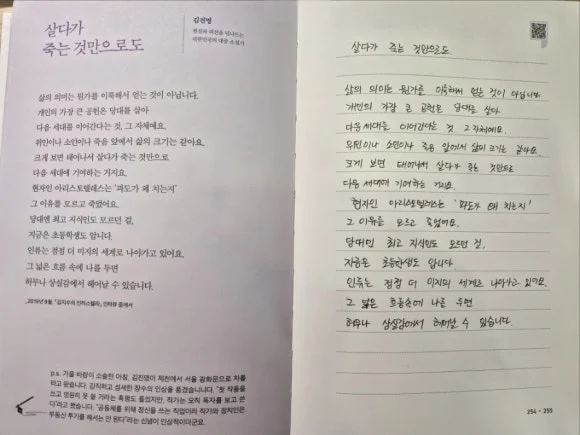 살다가
죽는 것만으로도
김진명
현실과 픽션을 넘나드는
대한민국의 대중 소설가
삶의 의미는 뭔가를 이룩해서 얻는 것이 아닙니다.
개인의 가장 큰 공헌은 당대를 살아
다음 세대를 이어간다는 것, 그 자체예요.
위인이나 소인이나 죽음 앞에서 삶의 크기는 같아요.
크게 보면 태어나서 살다가 죽는 것만으로
다음 세대에 기여하는 거지요.
현자인 아리스토텔레스는 '파도가 왜 치는지'
그 이유를 모르고 죽었어요.
당대엔 최고 지식인도 모르던 걸,
지금은 초등학생도 압니다.
인류는 점점 더 미지의 세계로 나아가고 있어요.
그 넓은 흐름 속에 나를 두면
허무나 상실감에서 헤어날 수 있습니다.
_2019년 9월, 「김지수의 인터스텔라」 인터뷰 중에서
p.s. 가을 바람이 소슬한 아침, 김진명이 제천에서 서울 광화문으로 차를
타고 왔습니다. 강직하고 섬세한 장수의 인상을 풍겼습니다. "첫 작품을
쓰고 영원히 못 쓸 거라는 혹평도 들었지만, 작가는 오직 독자를 보고 쓴
다"라고 했습니다. "공동체를 위해 정신을 쓰는 직업이라 작가와 정치인은
부동산 투기를 해서는 안 된다"라는 신념이 인상적이더군요.
살다가 죽는 것만으로도
삶의 의미는 뭔가를 이룩해서 얻는 것이 아닙니다.
개인의 가장 큰 공헌은 당대를 살다
다음 세대를 이어간다는 것 그 자체에요.
위인이나 소인이나 죽음 앞에서 삶의 크기는 같아요.
크게 보면 태어나서 살다가 죽는 것만으로
다음 세대에 기여하는 거지요.
현자인 아리스토텔레스는 '파도가 왜 치는지'
그 이유를 모르고 죽었어요.
당대엔 최고 지식인도 모르던 걸,
지금은 초등학생도 압니다.
인류는 점점 더 미지의 세계로 나아가고 있어요.
그 넓은 흐름속에 나를 두면
허무나 상실감에서 헤어날 수 있습니다.
254 • 255